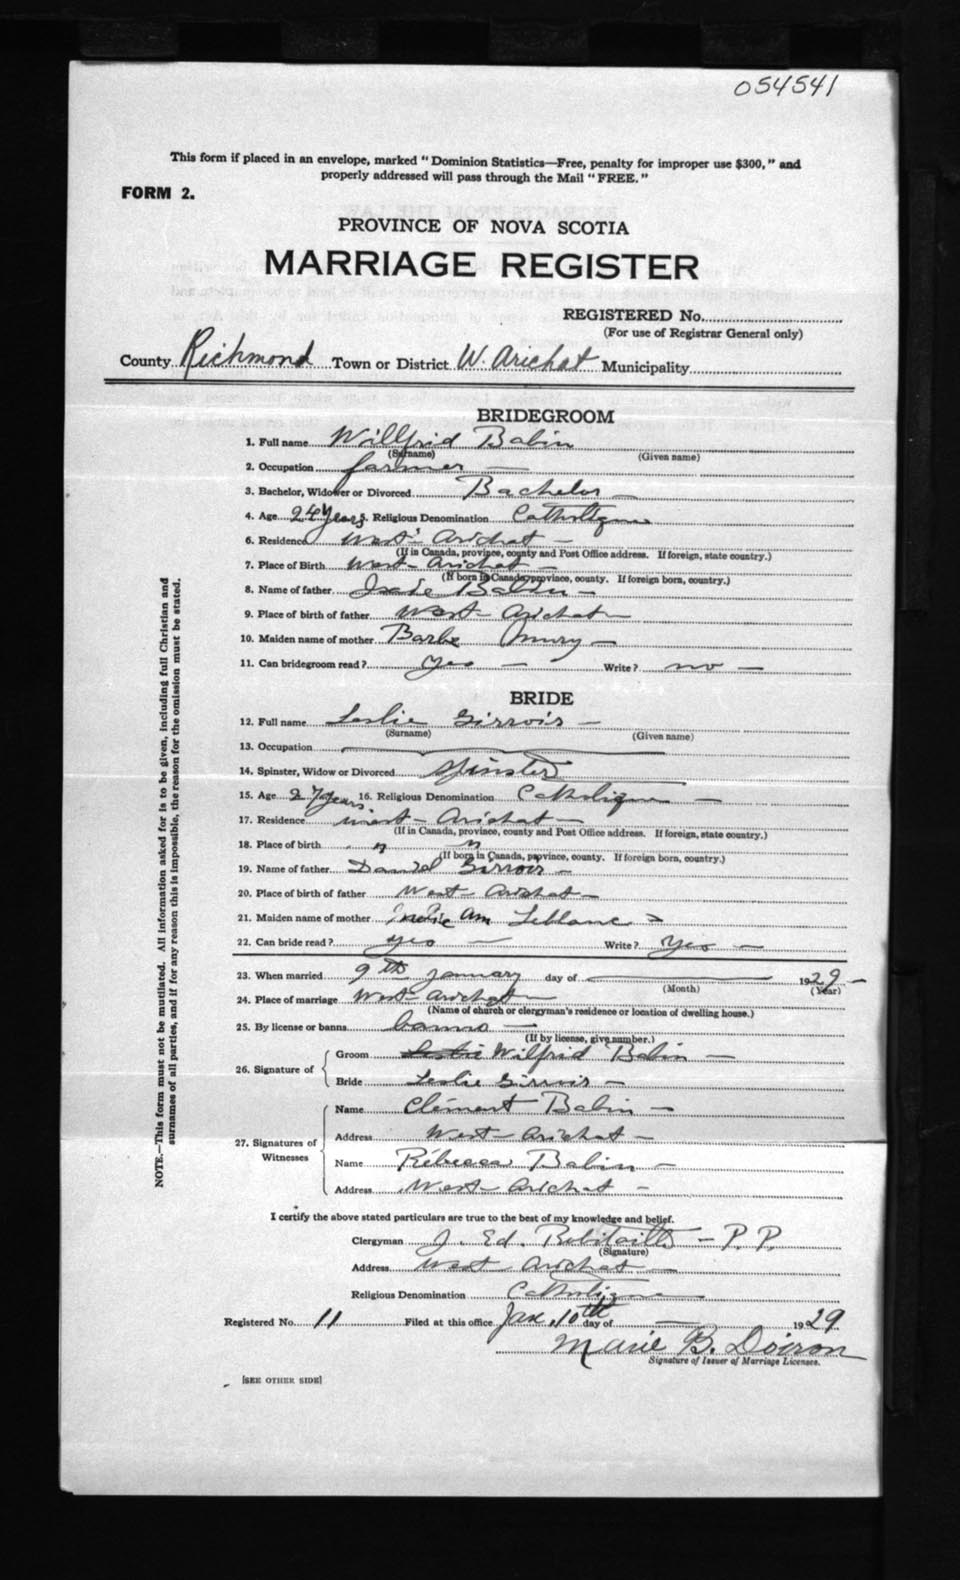 054541
This form if placed in an envelope, marked "Dominion Statistics—Free, penalty for improper use $300," and
properly addressed will pass through the Mail "FREE."
FORM 2.
PROVINCE OF NOVA SCOTIA
MARRIAGE REGISTER
REGISTERED No.
(For use of Registrar General only)
County Richmond Town or District W. Arichat Municipality
BRIDEGROOM
1. Full name Willfrid Babin
(Surname) (Given name)
2. Occupation farmer —
3. Bachelor, Widower or Divorced Bachelor —
4. Age 24 years 5. Religious Denomination Catholique
6. Residence West Arichat —
(If in Canada, province, county and Post Office address. If foreign, state country.)
7. Place of Birth West Arichat —
(If born in Canada, province, county. If foreign born, country.)
8. Name of father Babin —
9. Place of birth of father West Arichat —
10. Maiden name of mother Barbe —
11. Can bridegroom read? Yes — Write? no —
BRIDE
12. Full name Leslie Girroir —
(Surname) (Given name)
13. Occupation
14. Spinster, Widow or Divorced spinster
15. Age 27 years 16. Religious Denomination Catholique —
17. Residence West Arichat —
(If in Canada, province, county and Post Office address. If foreign, state country.)
18. Place of birth " "
(If born in Canada, province, county. If foreign born, country.)
19. Name of father Daniel Girroir —
20. Place of birth of father West Arichat —
21. Maiden name of mother Ann Leblanc
22. Can bride read? yes — Write? Yes —
23. When married 9th January day of — 1929 —
(Month) (Year)
24. Place of marriage West Arichat —
(Name of church or clergyman's residence or location of dwelling house.)
25. By license or banns banns —
(If by license, give number.)
26. Signature of
Groom Leslie Wilfrid Babin —
Bride Leslie Girroir —
27. Signatures of Witnesses
Name Clément Babin —
Address West Arichat —
Name Rébecca Babin —
Address West Arichat —
I certify the above stated particulars are true to the best of my knowledge and belief.
Clergyman J. Ed. Robitaille — P. P.
(Signature)
Address West Arichat —
Religious Denomination Catholique
Registered No. 11 Filed at this office Jan. 10th day of — 1929
Marie B. Doiron
Signature of Issuer of Marriage Licenses.
[SEE OTHER SIDE]
NOTE.—This form must not be mutilated. All information asked for is to be given, including full Christian and
surnames of all parties, and if for any reason this is impossible, the reason for the omission must be stated.